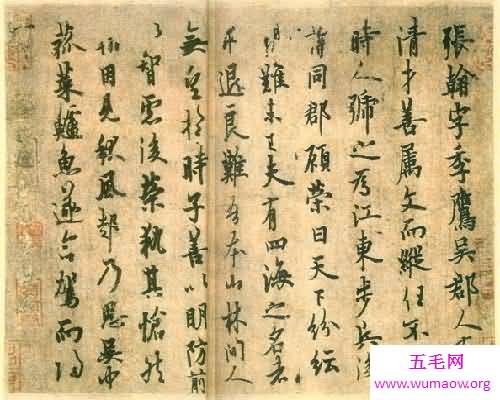 張翰字季鷹吳郡人有
清才善屬文而縱任不
時人號之為江東步兵後
謂同郡顧榮曰天下紛紜
禍難未已夫有四海之名者
求退良難吾本山林間人
無望於時子善以明防前
以智慮後榮執其愴然
翰因見秋風起乃思吳中
菰菜鱸魚遂命駕而歸
五毛网
www.wumaow.org